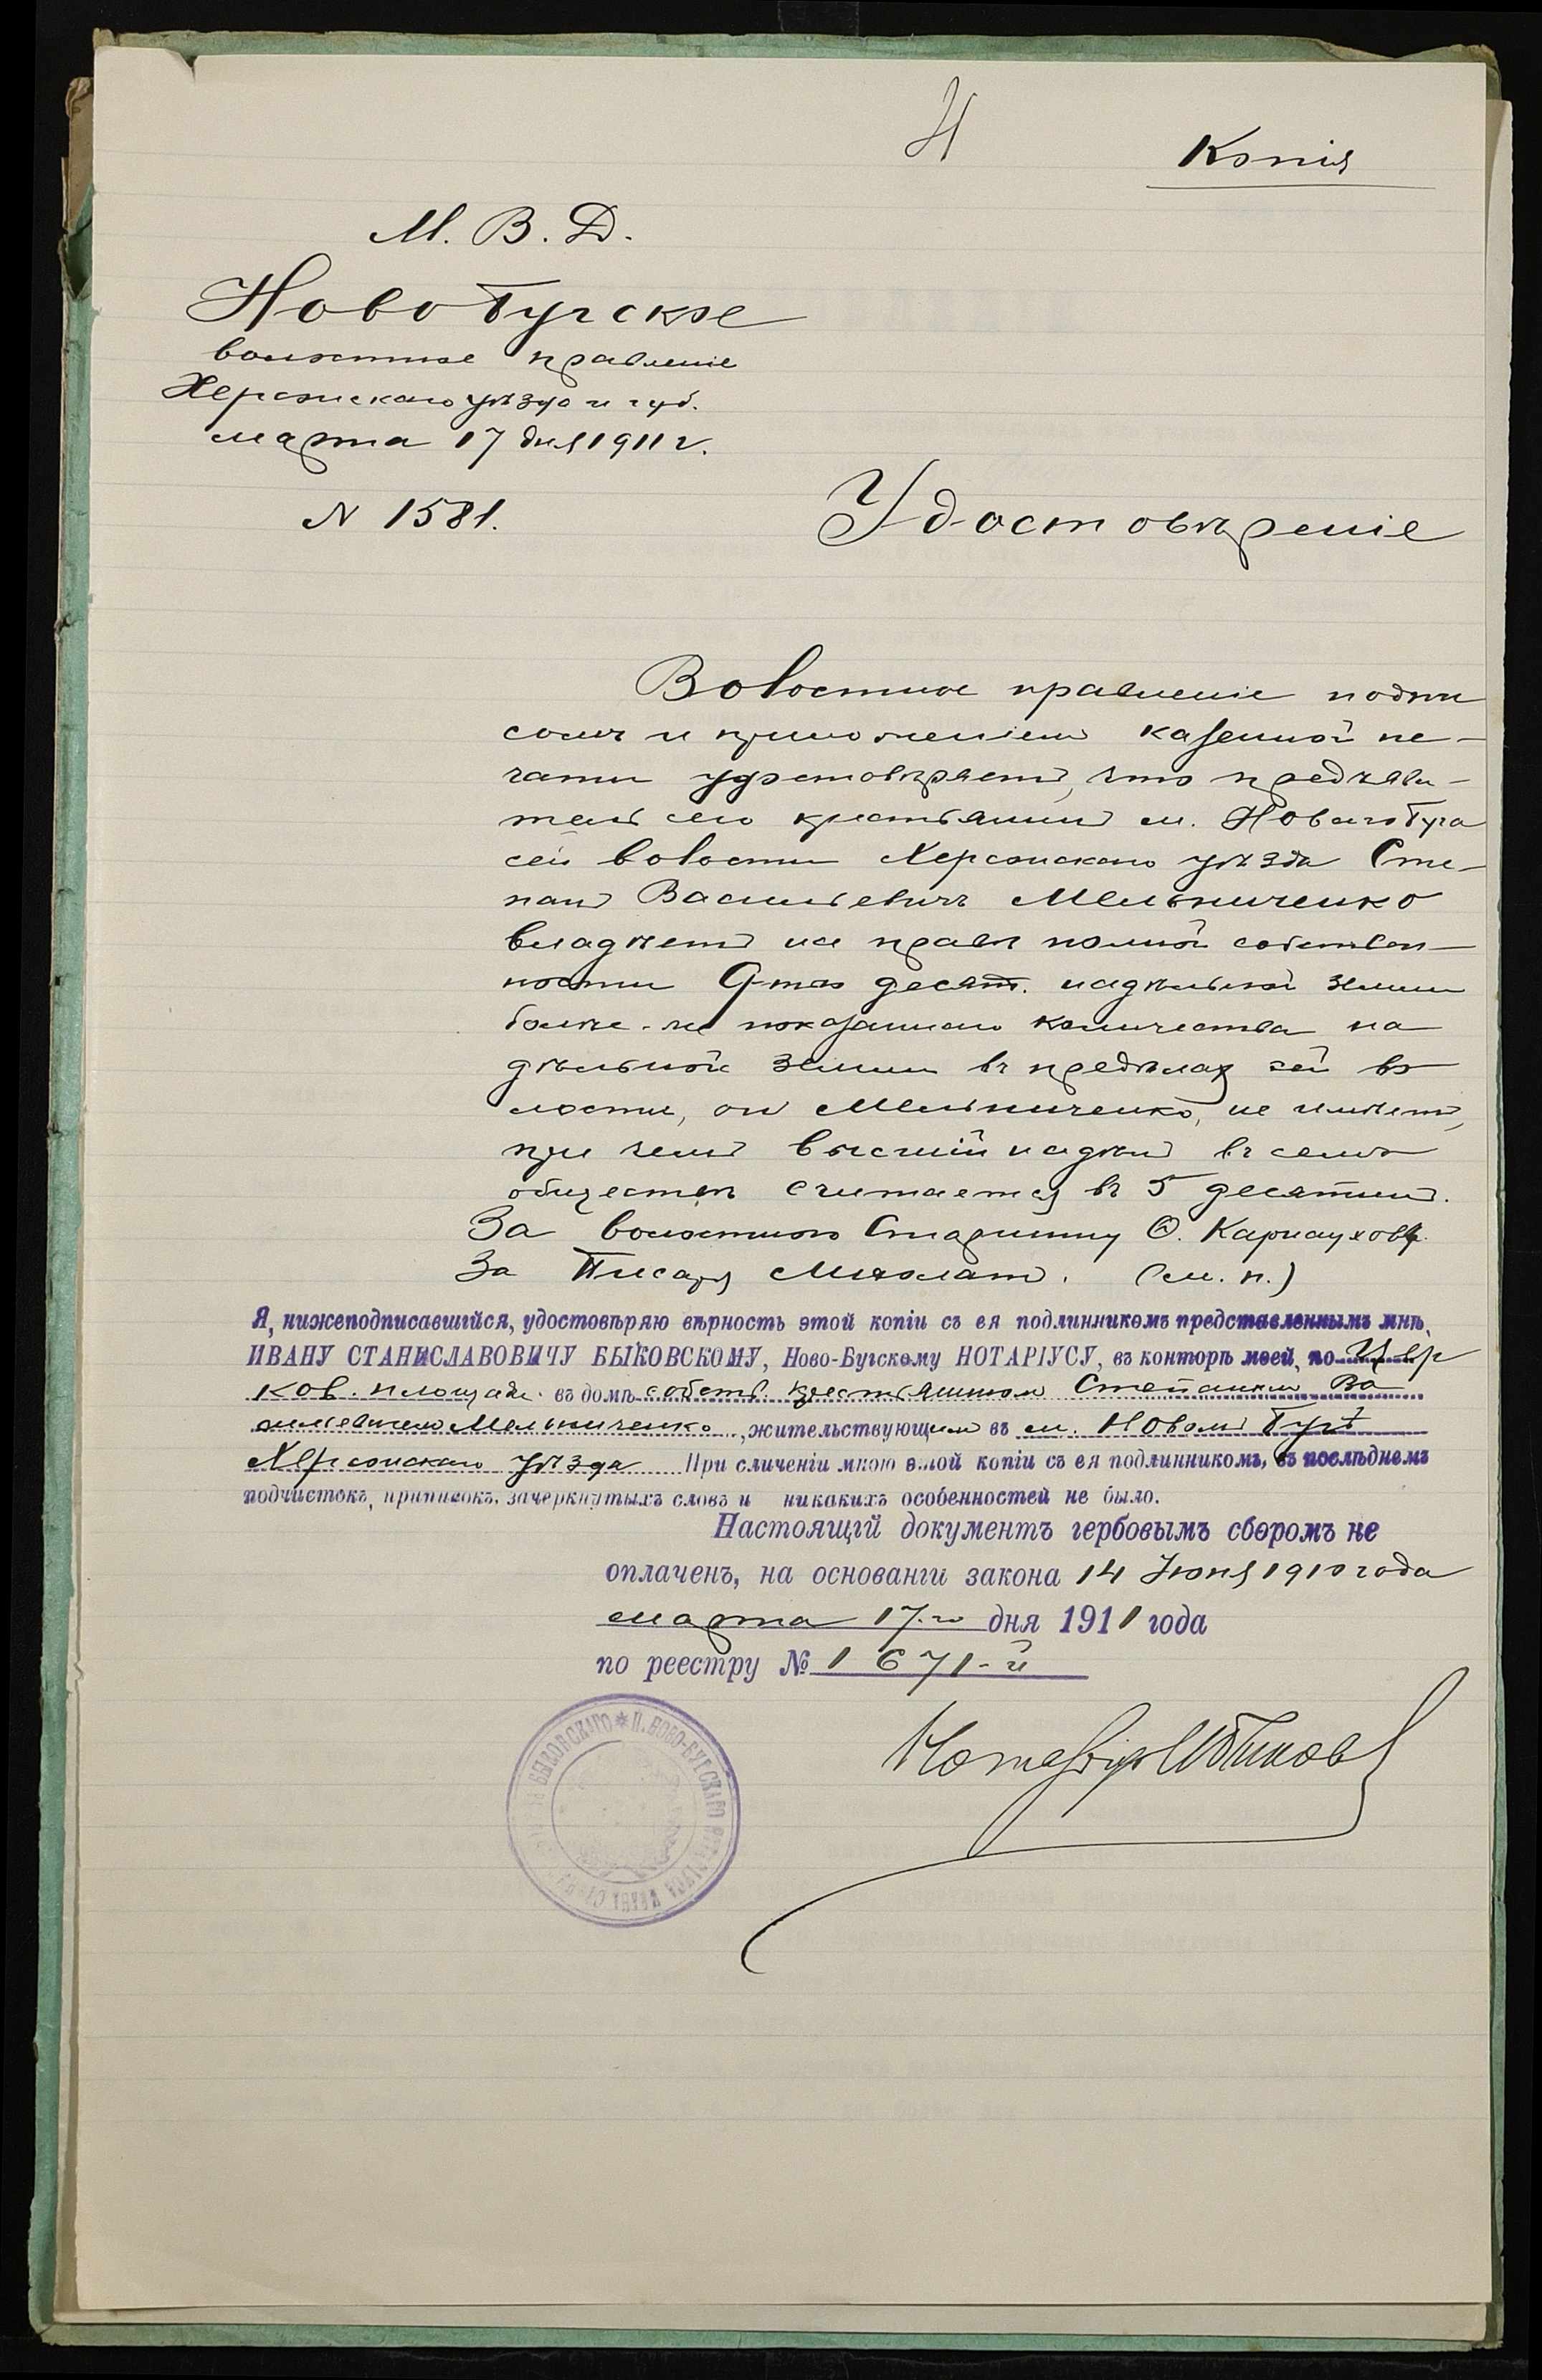 4
Копія
М. В. Д.
НовоБугское
волостное правленіе
Херсонскаго уѣзда и губ.
марта 17 дня 1911 г.
N 1581.
Удостовѣреніе
Волостное правленіе подпи
сомъ и приложеніемъ казенной пе-
чати удостовѣряетъ, что предъяви-
тель сего крестьянинъ м. Новаго Буга
сей волости Херсонскаго уѣзда Сте-
панъ Васильевичъ Мельниченко
владѣетъ на правѣ полной собствен-
ности 9-тью десят. надѣльной земли
болѣе-же показаннаго количества на
дѣльной земли въ предѣлах сей во
лости, онъ Мельниченко, не имѣетъ,
при чемъ высшій надѣлъ въ семъ
обществѣ считается въ 5 десятинъ.
За волостного Старшину Ѳ. Карнауховъ.
За Писаря (м. п.)
Я, нижеподписавшійся, удостовѣряю вѣрность этой копіи съ ея подлинникомъ представленнымъ мнѣ,
ИВАНУ СТАНИСЛАВОВИЧУ БЫКОВСКОМУ, Ново-Бугскому НОТАРІУСУ, въ конторѣ моей, по Цер
ков. площади. въ домѣ собств. крестьяниномъ Степаномъ Ва
сильевичемъ Мельниченко, жительствующимъ въ м. Новомъ Бугѣ
Херсонскаго уѣзда При сличеніи мною этой копіи съ ея подлинникомъ, въ послѣднемъ
подчистокъ, приписокъ, зачеркнутыхъ словъ и никакихъ особенностей не было.
Настоящій документъ гербовымъ сборомъ не
оплаченъ, на основаніи закона 14 Іюня 1910 года
марта 17-го дня 1911 года
по реестру № 1671-й
Нотаріусъ
БЫКОВСКАГО * П. НОВО-БУГСКАГО НОТАРІУСА ИВАНА